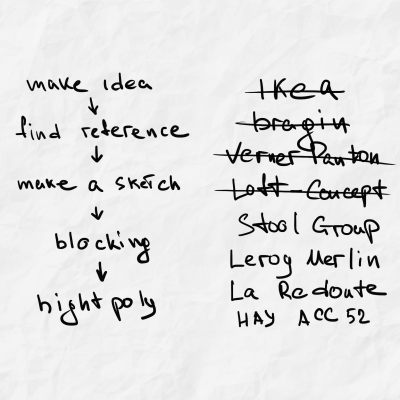 make idea
find reference
make a sketch
blocking
hight poly
Ikea
bragin
Verner Panton
Loft-Concept
Stool Group
Leroy Merlin
La Redoute
HAY ACC 52